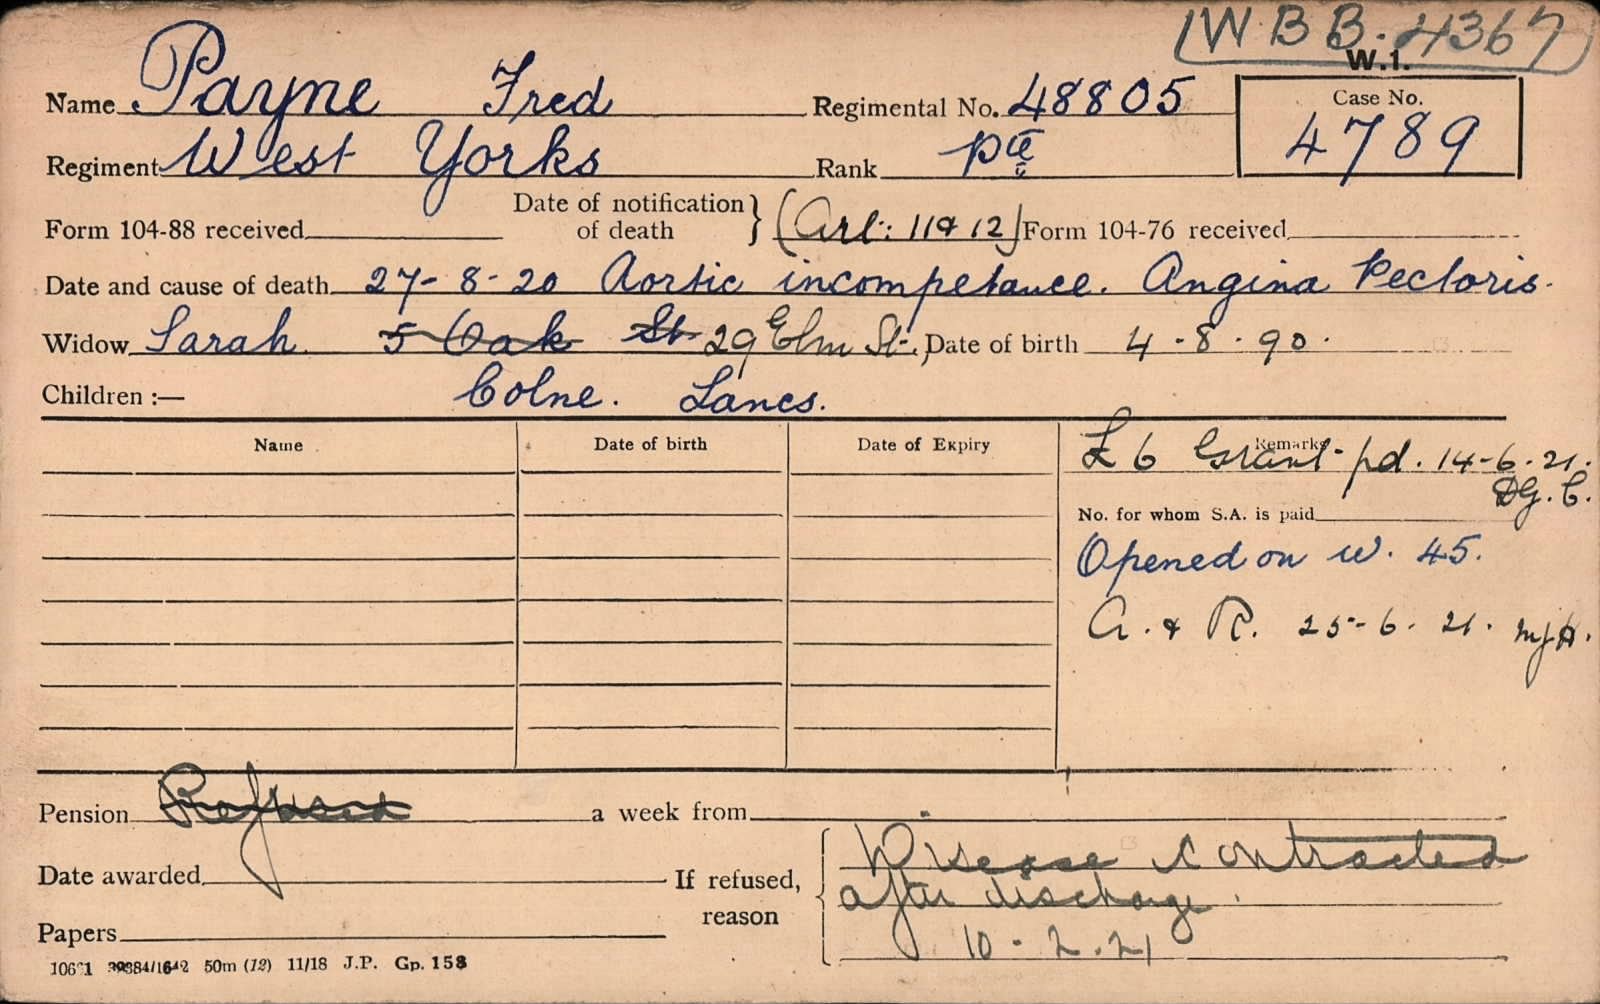 W.B.B. 4367
W.1.
Name Payne Fred Regimental No. 48805 Case No.
4789
Regiment West Yorks Rank Pte
Form 104-88 received Date of notification of death } (Art: 11 & 12) Form 104-76 received
Date and cause of death 27-8-20 Aortic incompetance. Angina Pectoris.
Widow Sarah. 5 Oak St 29 Elm St., Date of birth 4.8.90.
Children :— Colne. Lancs.
Name Date of birth Date of Expiry Remarks
£6 Grant pd. 14-6-21.
DG.C.
No. for whom S.A. is paid
Opened on W. 45.
A. & R. 25-6-21.
Pension Refused a week from
Date awarded If refused, reason { Disease contracted
after discharge.
Papers 10-2-21
50m (12) 11/18 J.P. Gp. 153